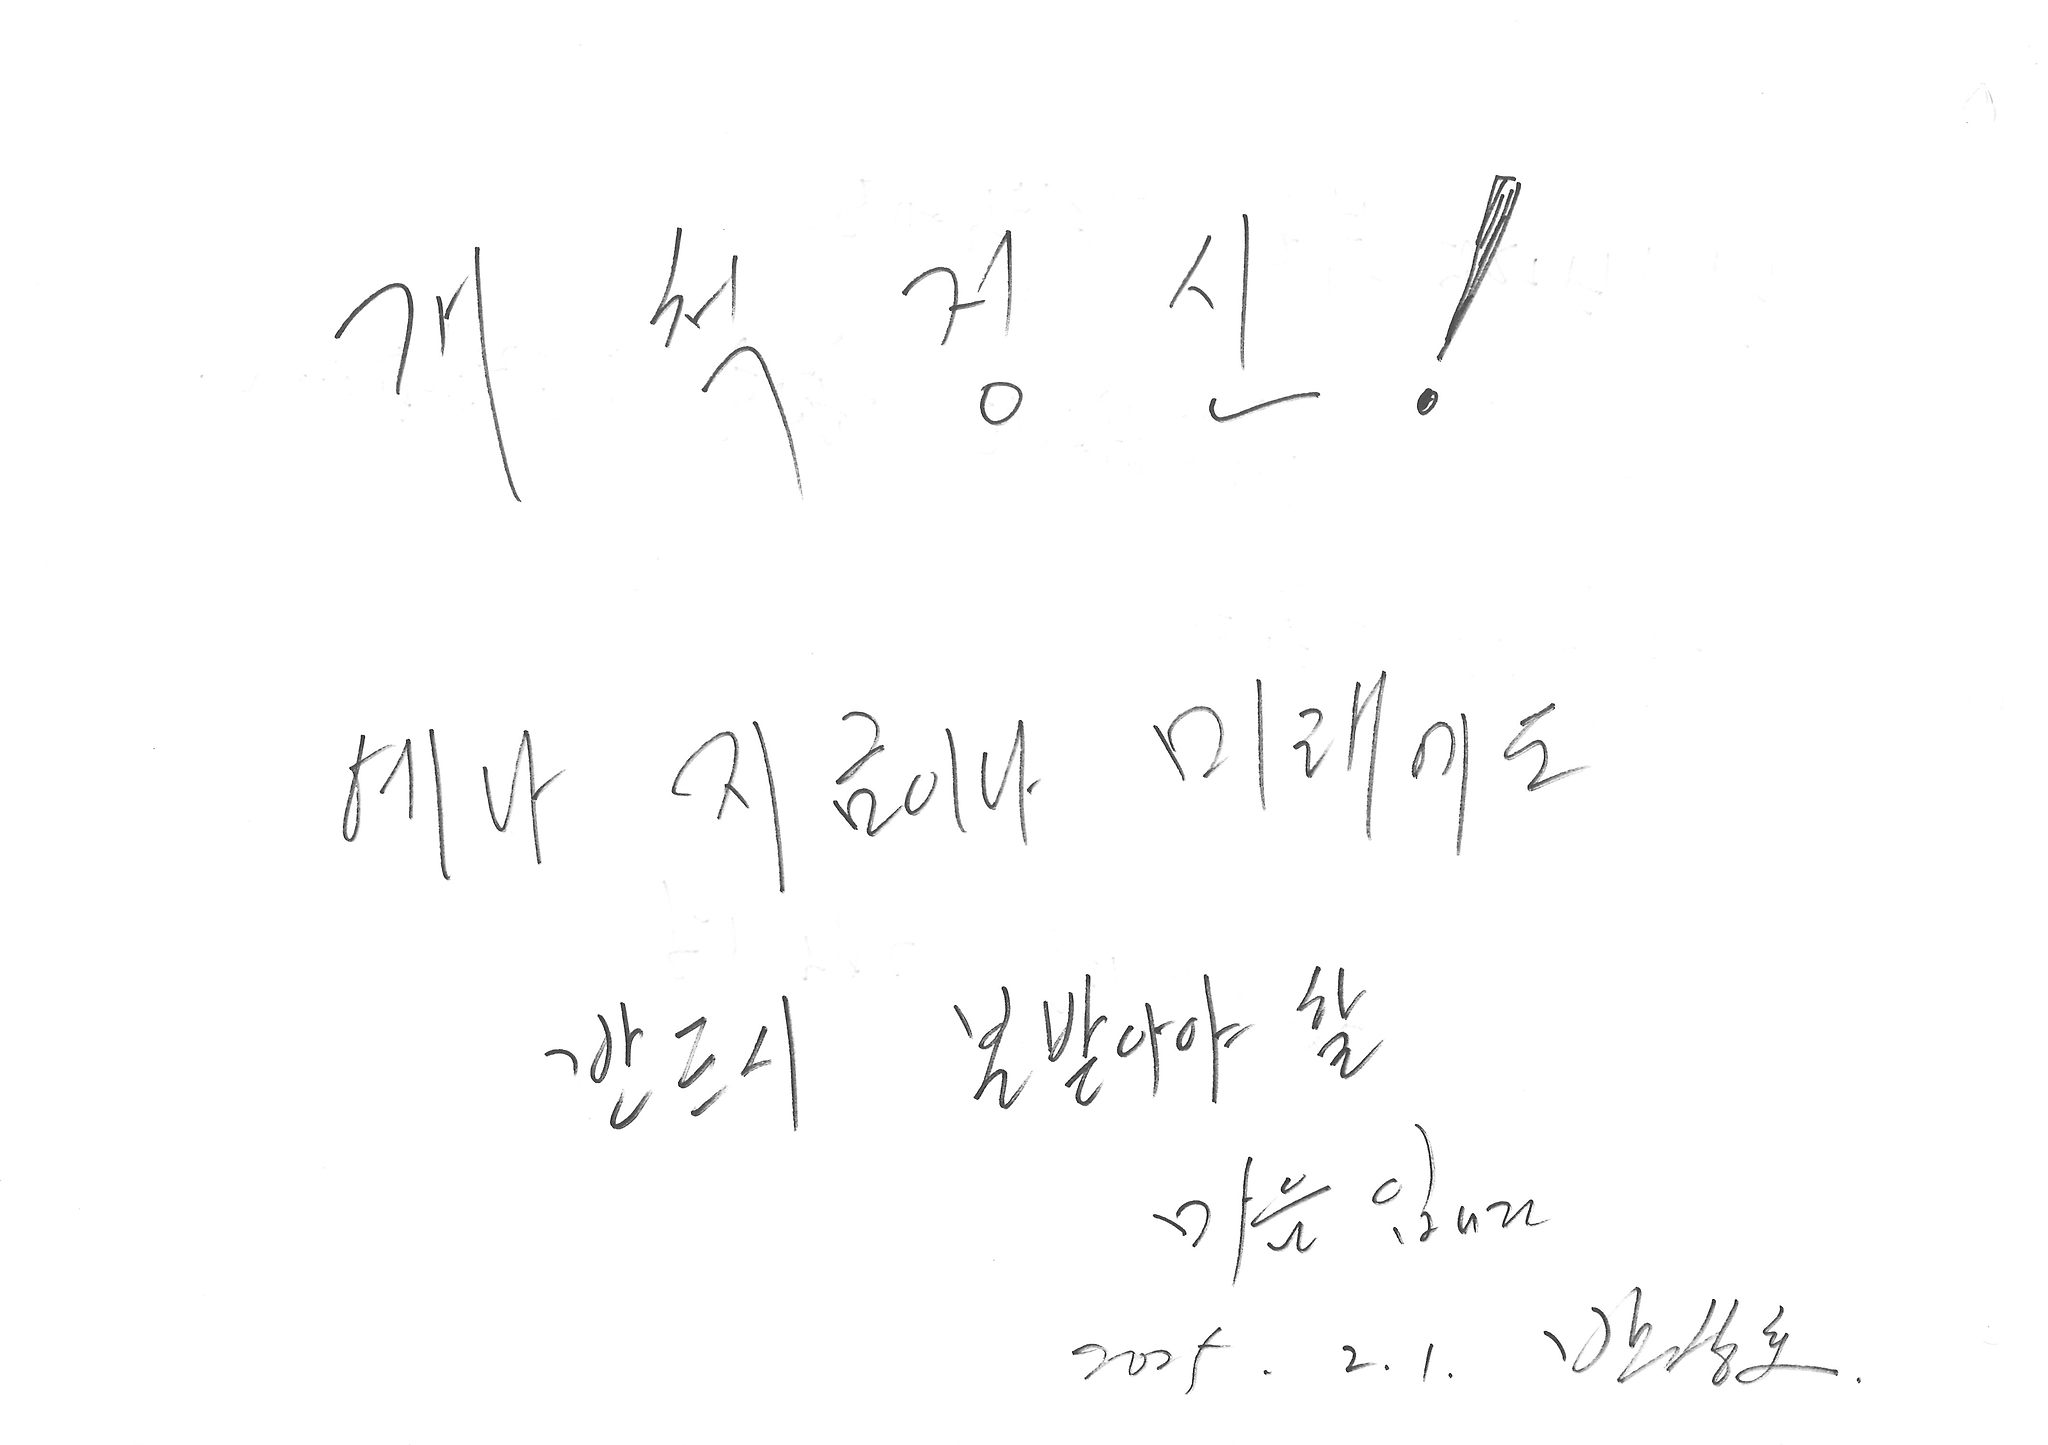 개척정신!
예나 지금이나 미래에도
반드시 본받아야 할
마음 입니다
2025. 2. 1.